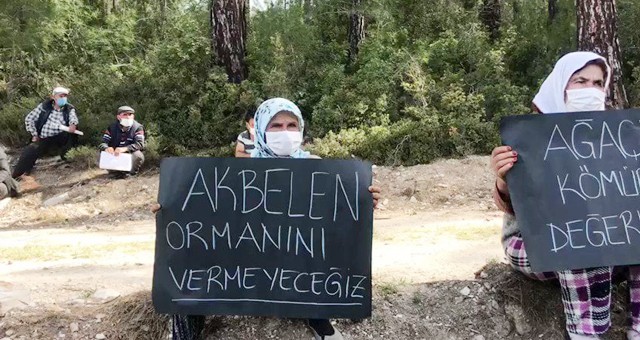 AKBELEN
ORMANINI
VERMEYECEĞİZ
AĞAÇ
KÖMÜR
DEĞER